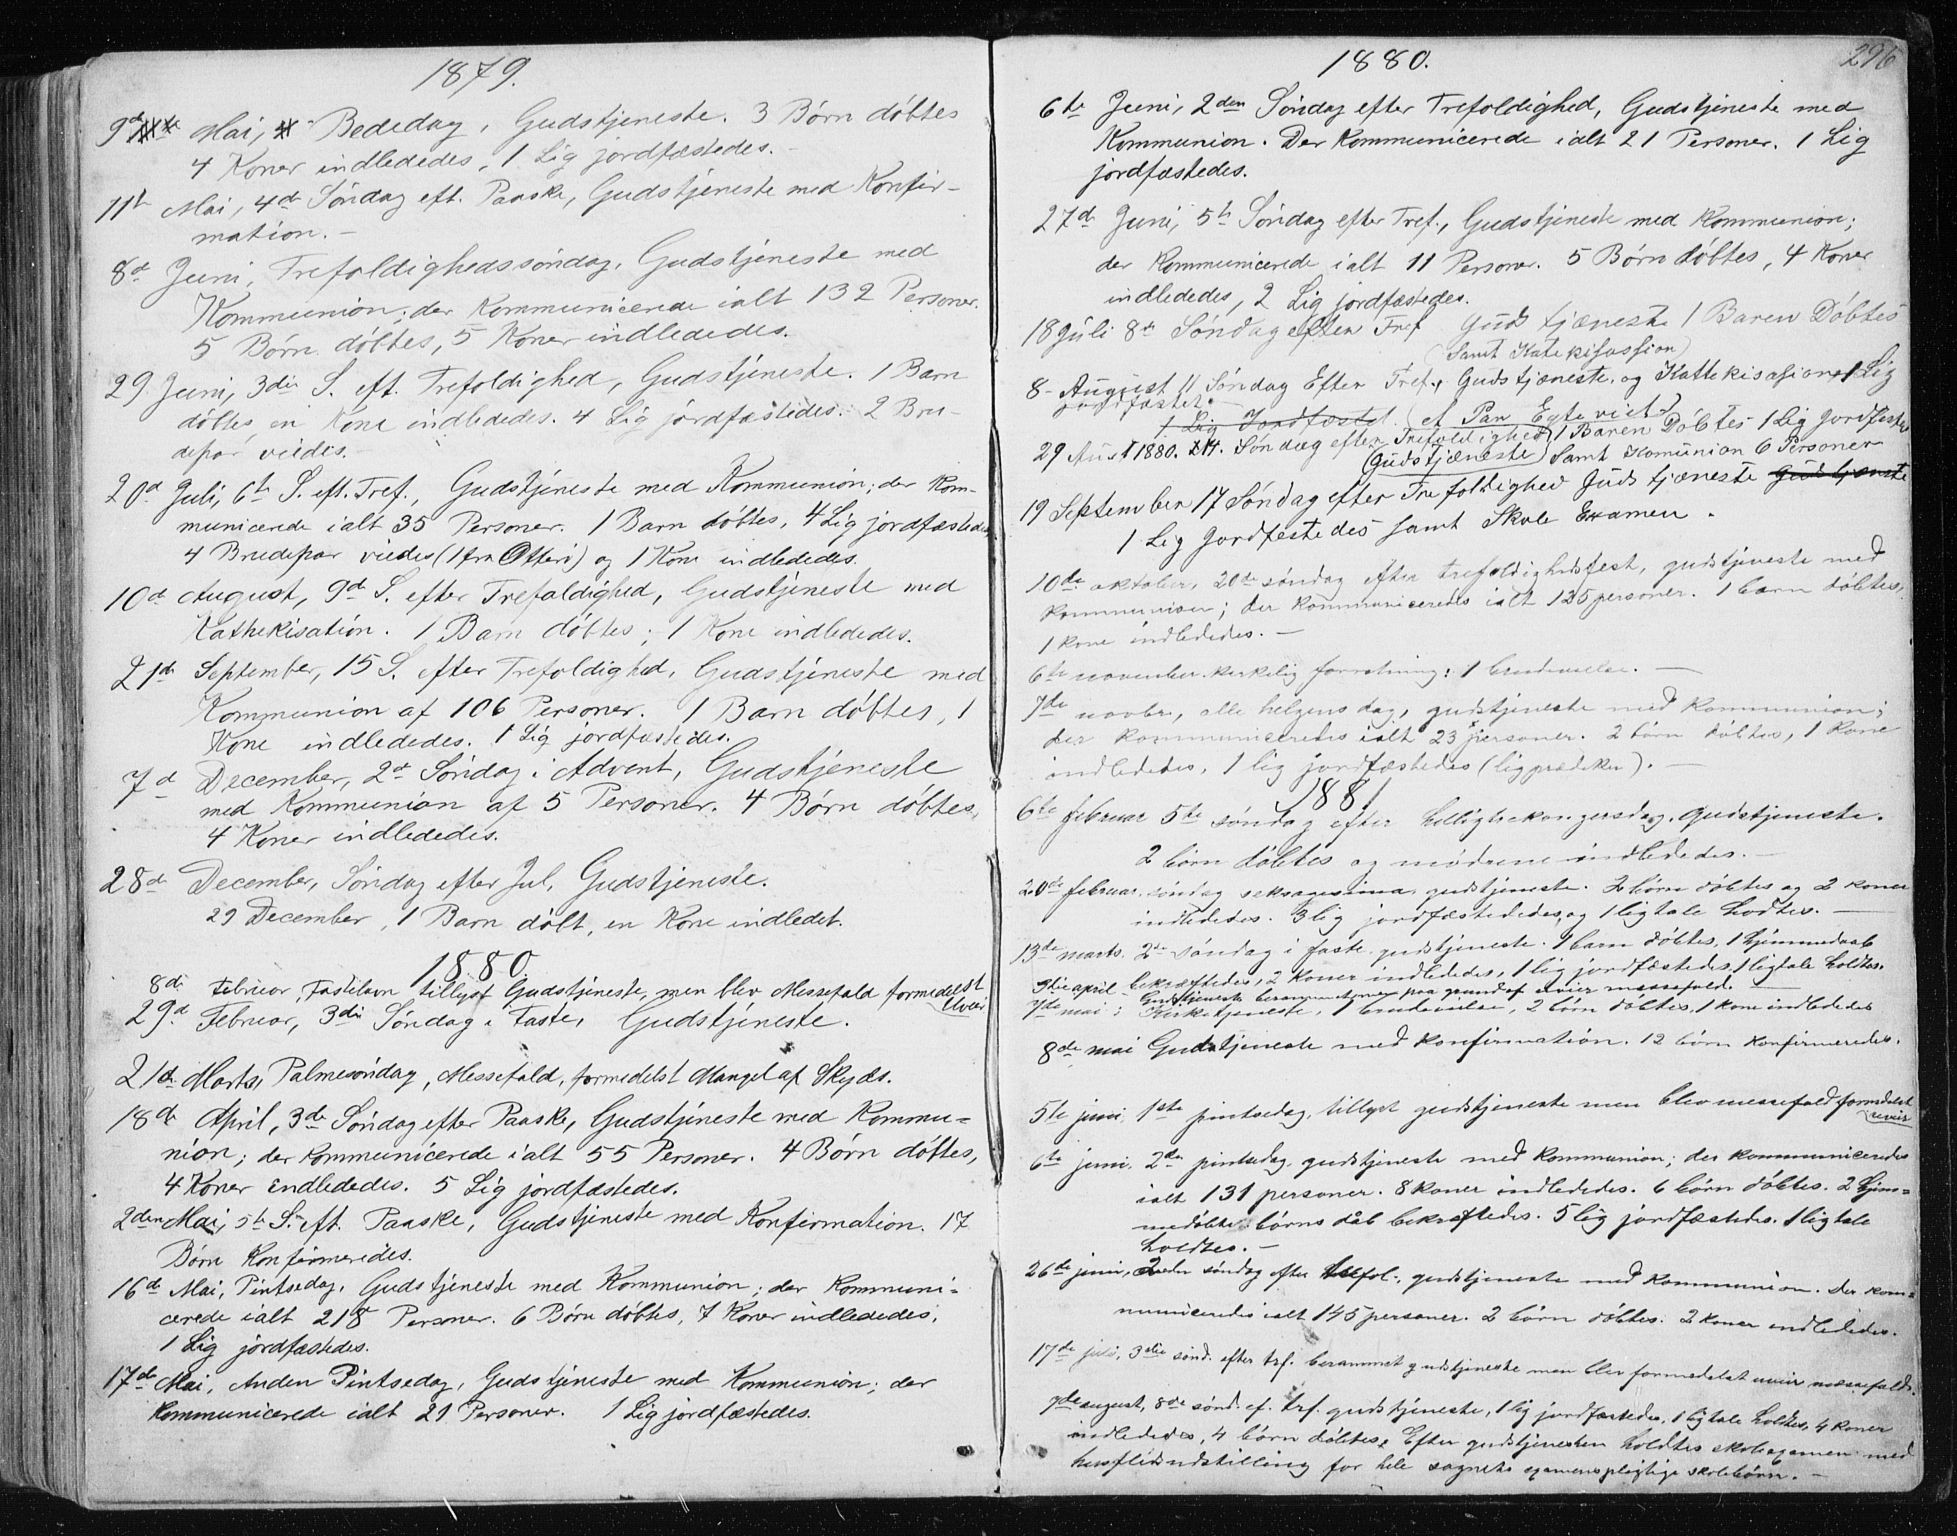 1879.
9de Mai, Bededag, Gudstjeneste. 3 Børn døbtes
4 Koner indlededes, 1 Lig jordfæstedes.
11te Mai, 4de Søndag eft. Paaske, Gudstjeneste med Konfir-
mation.
8de Juni, Trefoldighedssøndag, Gudstjeneste med
Kommunion; der kommunicerede ialt 132 Personer.
5 Børn døbtes, 5 Koner indlededes.
29 Juni, 3die S. eft. Trefoldighed, Gudstjeneste. 1 Barn
døbtes, en Kone indlededes. 4 Lig jordfæstedes. 2 Bru-
depar viedes.
20de Juli, 6te S. eft. Tref., Gudstjeneste med Kommunion; der kom-
municerede ialt 35 Personer. 1 Barn døbtes, 4 Lig jordfæstedes,
4 Brudepar viedes (1 fra Otterø) og 1 Kone indlededes.
10de August, 9de S. efter Trefoldighed, Gudstjeneste med
Kathekisation. 1 Barn døbtes; 1 Kone indlededes.
21de September, 15 S. efter Trefoldighed, Gudstjeneste med
Kommunion af 106 Personer. 1 Barn døbtes, 1
Kone indlededes. 1 Lig jordfæstedes.
7de December, 2den Søndag i Advent, Gudstjeneste
med Kommunion af 5 Personer. 4 Børn døbtes,
4 Koner indlededes.
28de December, Søndag efter Jul, Gudstjeneste.
29 December, 1 Barn døbt, en Kone indledet.
1880
8de Februar, Fastelavn tillyst Gudstjeneste, men blev Messefald formedelst
Uveir
29de Februar, 3die Søndag i Faste, Gudstjeneste.
21de Marts, Palmesøndag, Messefald, formedelst Mangel af Skyds.
18de April, 3de Søndag efter Paaske, Gudstjeneste med Kommu-
nion; der kommunicerede ialt 55 Personer. 4 Børn døbtes,
4 Koner indlededes. 5 Lig jordfæstedes.
2den Mai, 5te S. eft. Paaske, Gudstjeneste med Konfirmation. 17
Børn konfirmeredes.
16de Mai, Pintsedag, Gudstjeneste med Kommunion; der kommuni-
cerede ialt 218 Personer. 6 Børn døbtes, 7 Koner indlededes,
1 Lig jordfæstedes.
17de Mai, Anden Pintsedag, Gudstjeneste med Kommunion; der
kommunicerede ialt 21 Personer. 1 Lig jordfæstedes.
1880. 296
6te Juni, 2den Søndag efter Trefoldighed, Gudstjeneste med
Kommunion. Der kommunicerede ialt 21 Personer. 1 Lig
jordfæstedes.
27de Juni, 5te Søndag efter Tref., Gudstjeneste med Kommunion;
der kommunicerede ialt 11 Personer. 5 Børn døbtes, 4 Koner
indlededes, 2 Lig jordfæstedes.
18 Juli 8de Søndag efter Tref Guds tjæneste 1 Baren Døbtes
(Samt Katekisassion)
8- August 11 Søndag Efter Tref., Gudstjæneste og Kattekisasjon 1 Lig
jordfæstet.
1 Lig Jordfæstet. et Par Egte viet
29 Aust 1880. 14. Søndag efter Trefoldighed 1 Baren Døbtes 1 Lig Jordfæstes
(Gudstjæneste) Samt Komunion 6 Personer
19 September 17 Søndag efter Trefoldighed Guds tjæneste Guds tjæneste
1 Lig Jordfestedes samt Skole Examen.
10de oktober, 20de søndag efter trefoldighedsfest, gudstjeneste med
kommunion; der kommuniceredes ialt 135 personer. 1 barn døbtes,
1 kone indlededes.
6te november kirkelig forretning: 1 brudevielse.
7de novbr, alle helgens dag, gudstjeneste med kommunion;
der kommuniceredes ialt 23 personer. 2 børn døbtes, 1 kone
indlededes, 1 lig jordfæstedes (ligprædiken).
1881
6te februar 5te søndag efter helligtrekongersdag, gudstjeneste.
2 børn døbtes og mødrene indlededes.
20de februar, søndag seksagesima, gudstjeneste. 2 børn døbtes og 2 koner
indlededes. 3 lig jordfæstededes og 1 ligtale holdtes.
13de marts. 2de søndag i faste gudstjeneste. 1 barn døbtes, 1 hjemmedaab
bekræftedes, 2 koner indlededes, 1 lig jordfæstedes, 1 ligtale holdtes.
3die april Gudstjeneste berammet men paa grund af uveir messefald.
7de mai: Kirketjeneste, 1 brudevielse, 2 børn døbtes, 1 kone indlededes
8de mai Gudstjeneste med konfirmation. 12 børn konfirmeredes.
5te juni, 1ste pintsedag, tillyst gudstjeneste men blev messefald formedelst
uveir
6te juni, 2den pintsedag, gudstjeneste med kommunion; der kommuniceredes
ialt 131 personer. 8 koner indlededes. 6 børn døbtes. 2 hjem-
medøbte børns dåb bekræftedes. 5 lig jordfæstedes. 1 ligtale
holdtes.
26de juni, 2den søndag efter trefol-, gudstjeneste med kommunion. Der kom-
municeredes ialt 145 personer. 2 børn døbtes. 2 koner indlededes.
17de juli, 3die sønd. efter trf. berammet gudstjeneste men blev formedelst uveir messefald.
7de august, 8de sønd. ef. trf. gudstjeneste, 1 lig jordfæstedes, 1 ligtale holdtes, 4 koner
indlededes, 4 børn døbtes. Efter gudstjenesten holdtes skoleexamen med
husflidsudstilling for hele sognets examenspligtige skolebørn.